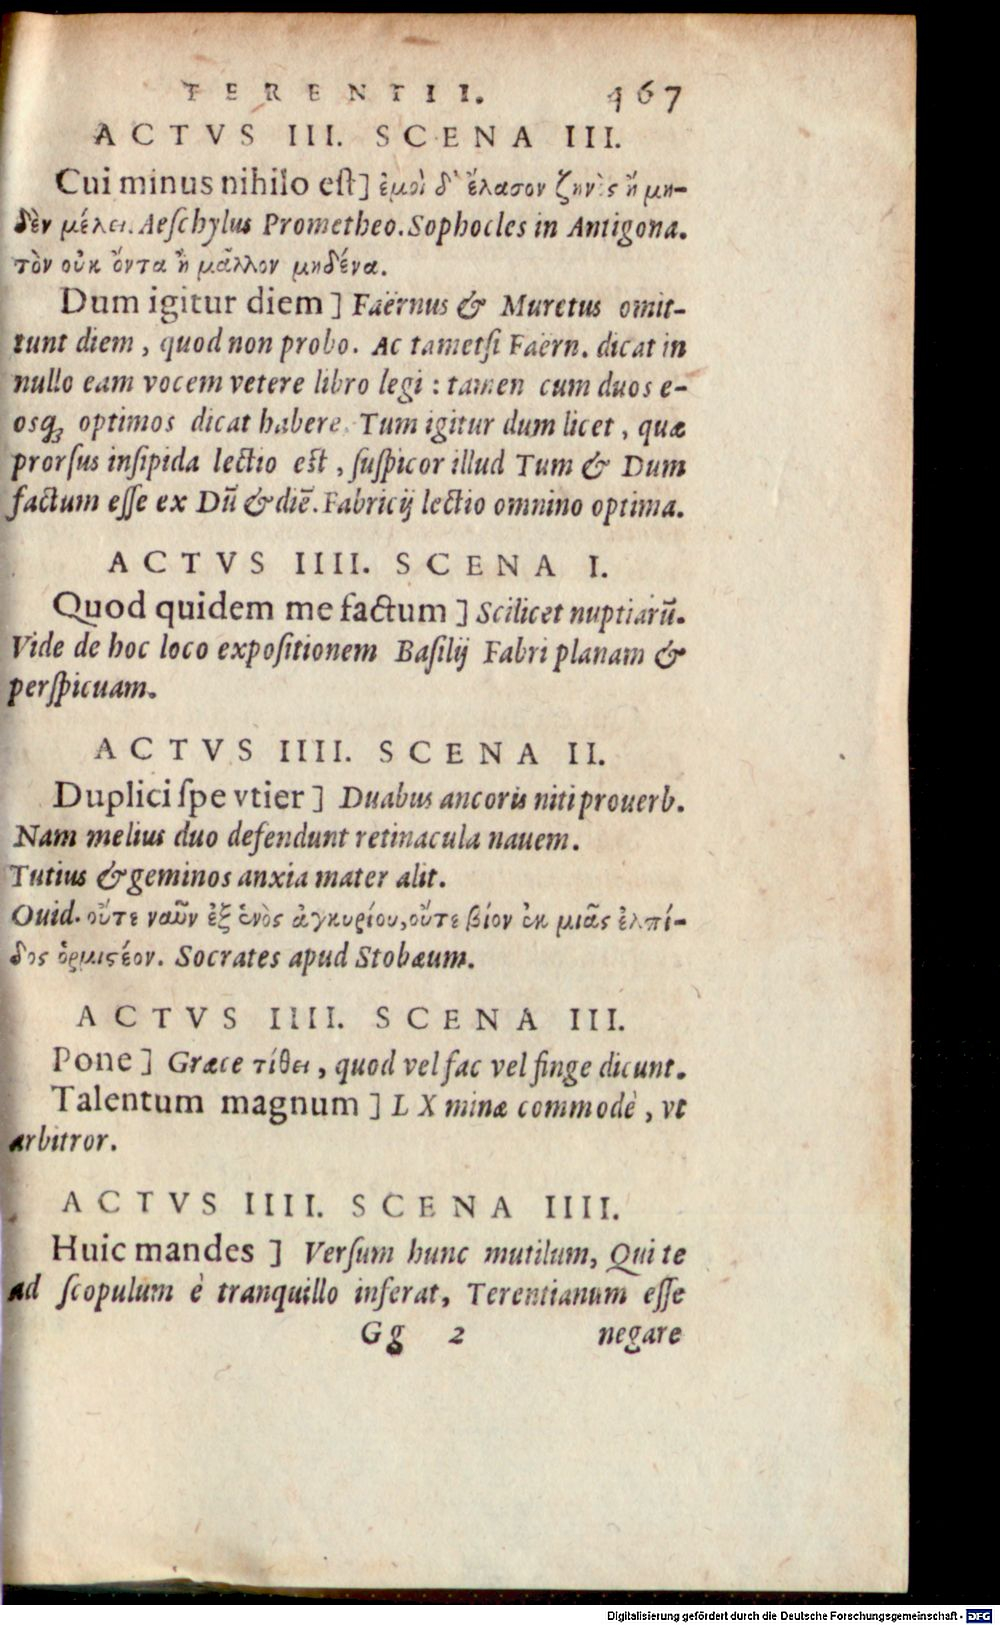 TERENTII. 467
ACTVS III. SCENA III.
Cui minus nihilo est] ἐμοὶ δ' ἔλασσον ζηνὸς ἢ μη-
δὲν μέλει. Aeschylus Prometheo. Sophocles in Antigona.
τὸν οὐκ ὄντα ἢ μᾶλλον μηδένα.
Dum igitur diem] Faërnus & Muretus omit-
tunt diem, quod non probo. Ac tametsi Faërn. dicat in
nullo eam vocem vetere libro legi: tamen cum duos e-
osq́ꝫ optimos dicat habere. Tum igitur dum licet, quæ
prorsus insipida lectio est, suspicor illud Tum & Dum
factum esse ex Dū & diē. Fabricij lectio omnino optima.
ACTVS IIII. SCENA I.
Quod quidem me factum] Scilicet nuptiarū.
Vide de hoc loco expositionem Basilij Fabri planam &
perspicuam.
ACTVS IIII. SCENA II.
Duplici spe vtier] Duabus ancoris niti prouerb.
Nam melius duo defendunt retinacula nauem.
Tutius & geminos anxia mater alit.
Ouid. οὔτε ναῦν ἐξ ἑνὸς ἀγκυρίου, οὔτε βίον ἐκ μιᾶς ἐλπί-
δος ὁρμιστέον. Socrates apud Stobæum.
ACTVS IIII. SCENA III.
Pone] Græce τίθει, quod vel fac vel finge dicunt.
Talentum magnum] LX minæ commodè, vt
arbitror.
ACTVS IIII. SCENA IIII.
Huic mandes] Versum hunc mutilum, Qui te
ad scopulum è tranquillo inferat, Terentianum esse
Gg 2 negare
Digitalisierung gefördert durch die Deutsche Forschungsgemeinschaft - DFG